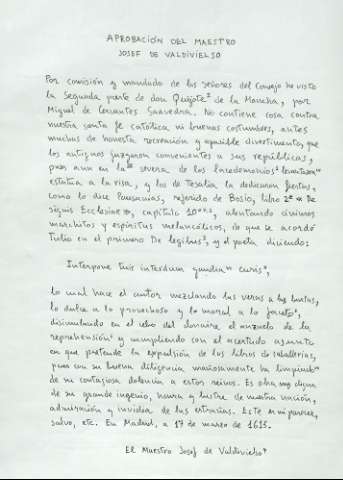 APROBACIÓN DEL MAESTRO
JOSEF DE VALDIVIELSO
Por comisión y mandado de los señores del Consejo he visto
la Segunda parte de don Quijote de la Mancha, por
Miguel de Cervantes Saavedra. No contiene cosa contra
nuestra santa fe católica ni buenas costumbres, antes
muchas de honesta recreación y apacible divertimiento, que
los antiguos juzgaron convenientes a sus repúblicas,
pues aun en la severa de los lacedemonios levantaron
estatua a la risa, y los de Tesalia la dedicaron fiestas,
como lo dice Pausanias, referido de Bosio, libro 2º De
signis Ecclesiae, capítulo 10º, alentando ánimos
marchitos y espíritus melancólicos, de que se acordó
Tulio en el primero De legibus, y el poeta diciendo:
Interpone tuis interdum gaudia curis,
lo cual hace el autor mezclando las veras a las burlas,
lo dulce a lo provechoso y lo moral a lo faceto,
disimulando en el cebo del donaire el anzuelo de la
reprehensión y cumpliendo con el acertado asunto
en que pretende la expulsión de los libros de caballerías,
pues con su buena diligencia mañosamente ha limpiado
de su contagiosa dolencia a estos reinos. Es obra muy digna
de su grande ingenio, honra y lustre de nuestra nación,
admiración y invidia de las estrañas. Este mi parecer,
salvo, etc. En Madrid, a 17 de marzo de 1615.
El Maestro Josef de Valdivielso